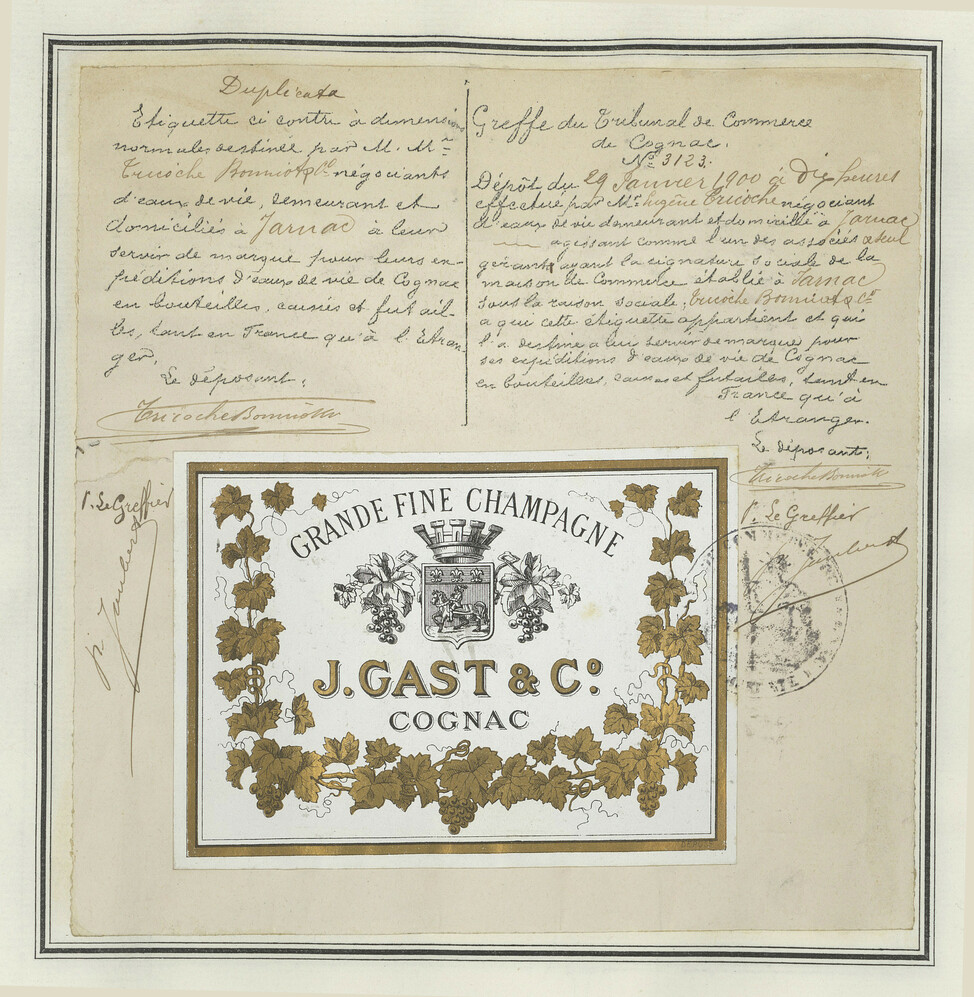 Duplicata
Etiquette ci contre à dimension
normale, destinée par M. Mrs
Tricoche Bonniot & Cie négociants
d'eaux de vie, demeurant et
domiciliés à Jarnac à leur
servir de marque pour leurs ex-
péditions d'eaux de vie de Cognac
en bouteilles, caisses et futail-
les, tant en France qu'à l'Etran-
ger.
Le déposant:
Tricoche Bonniot & Cie
P. Le Greffier
Greffe du Tribunal de Commerce
de Cognac.
No 3123.
Dépôt du 29 Janvier 1900 à dix heures
effectué par Mr Eugène Tricoche négociant
d'eaux de vie demeurant et domicilié à Jarnac
agissant comme l'un des associés seul
gérant ayant la signature sociale de la
maison de Commerce établie à Jarnac
sous la raison sociale, Tricoche Bonniot & Cie
a qui cette étiquette appartient et qui
l'a destine a leur servir de marque pour
ses expéditions d'eaux de vie de Cognac
en bouteilles, caisses et futailles, tant en
France qu'à
l'Etranger.
Le déposant:
Tricoche Bonniot & Cie
P. Le Greffier
GRANDE FINE CHAMPAGNE
J. GAST & Co.
COGNAC